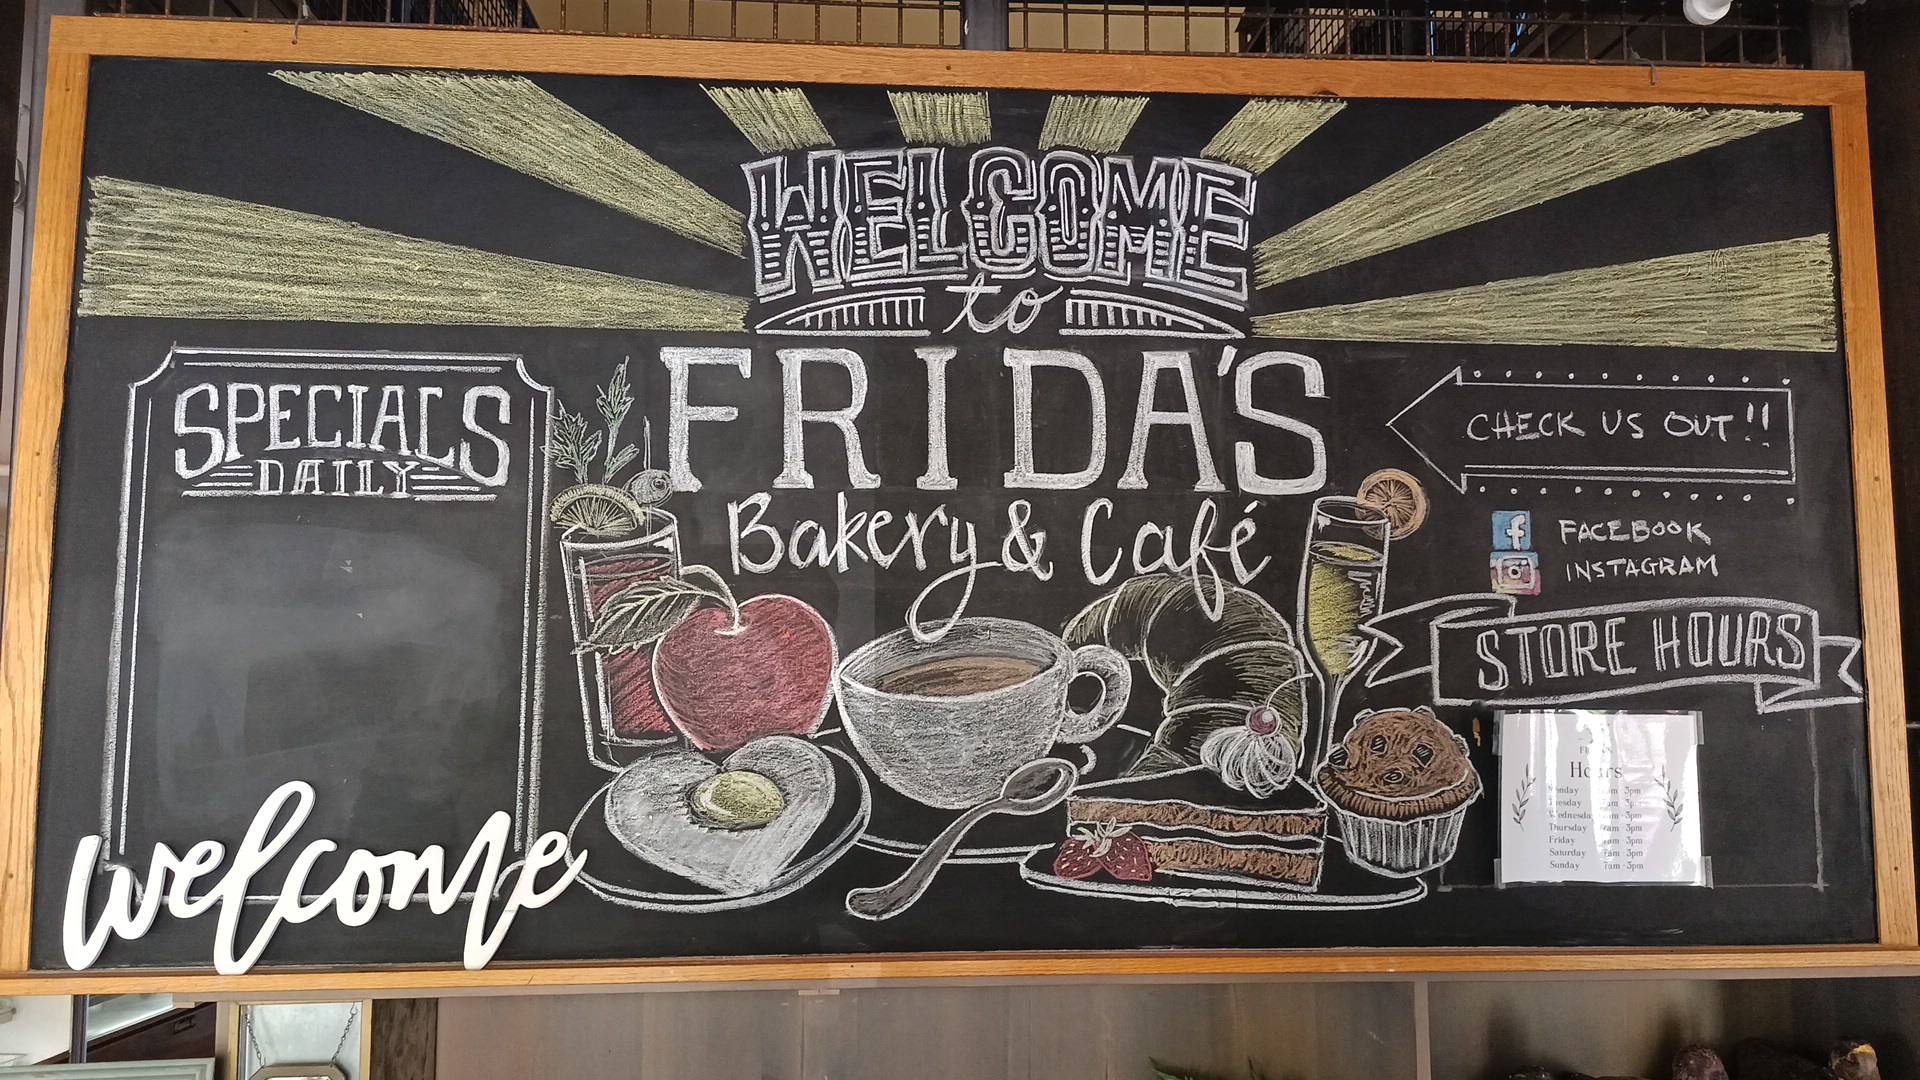 WELCOME
to
FRIDA'S
Bakery & Café
SPECIALS
DAILY
welcome
CHECK US OUT!!
f FACEBOOK
INSTAGRAM
STORE HOURS
Hours
Monday 7am 3pm
Tuesday 7am 3pm
Wednesday 7am 3pm
Thursday 7am 3pm
Friday 7am 3pm
Saturday 7am 3pm
Sunday 7am 3pm